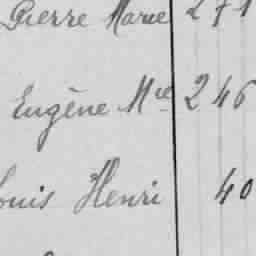 Pierre Marie 271
Eugène Mie 246
Louis Henri 40